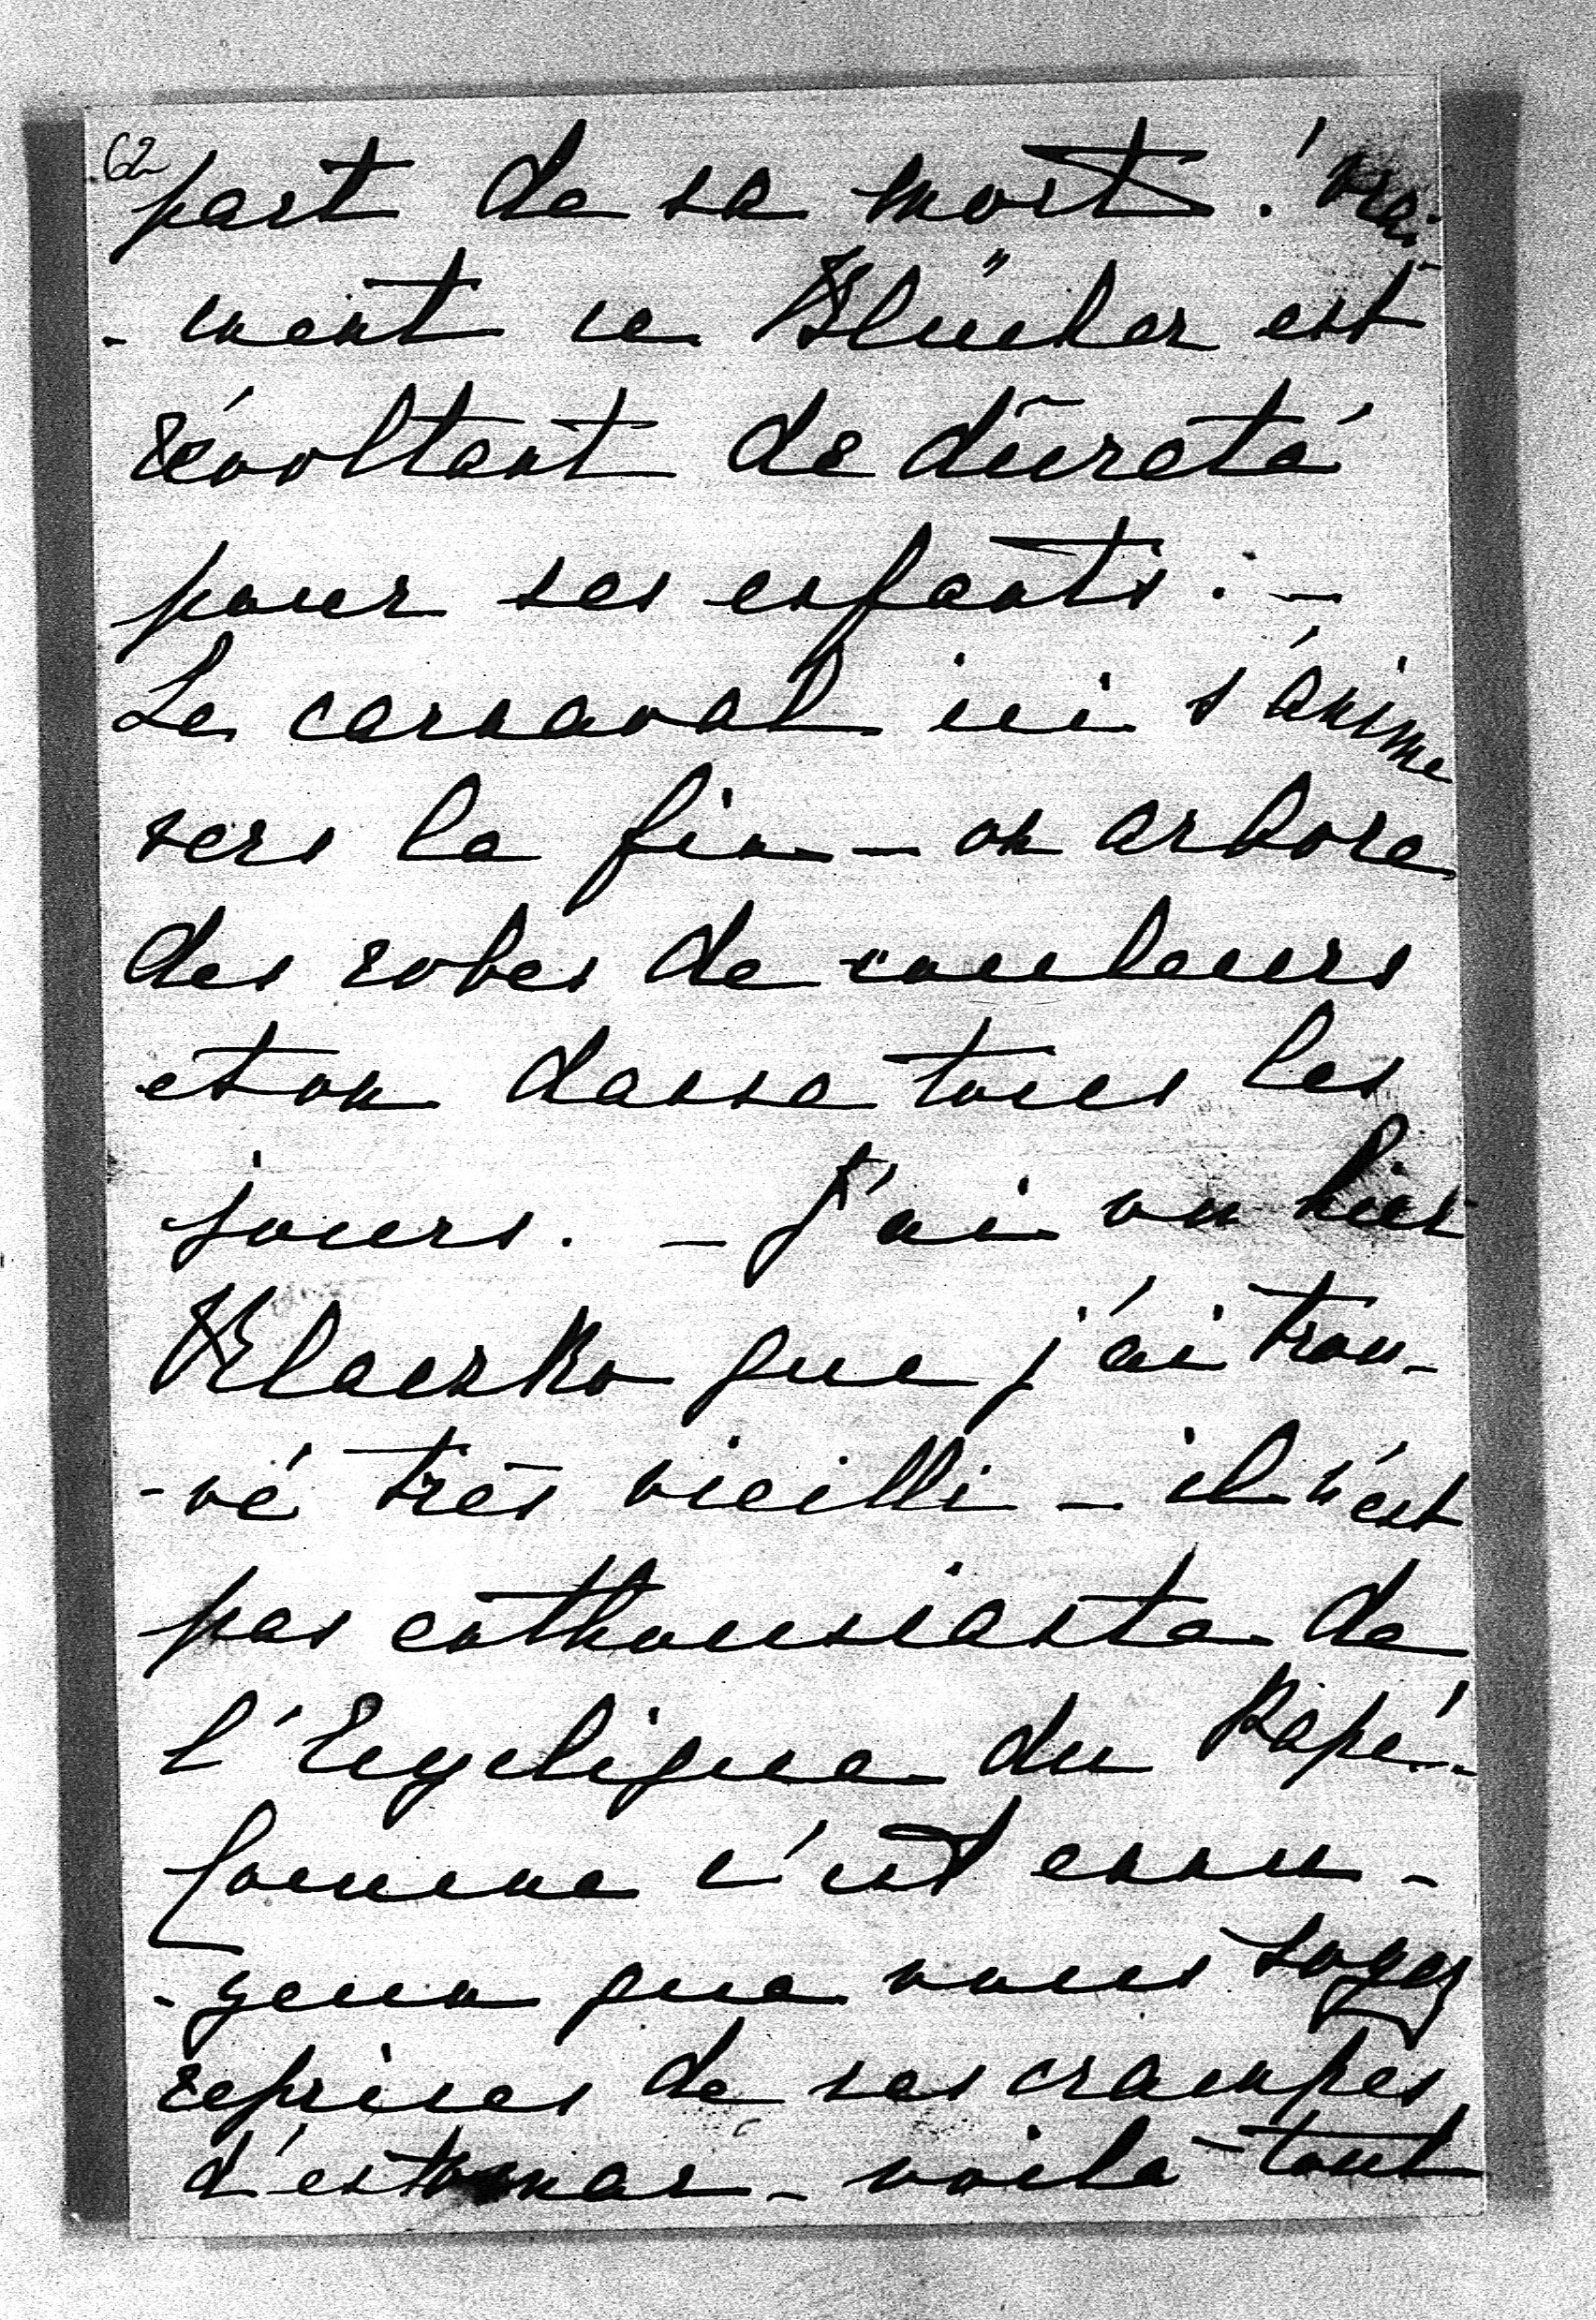 62
part de sa mort ! vrai
- ment ce Blücher est
révoltant de dûreté
pour ses enfants. —
Le carnaval ici s'anime
vers la fin — on arbore
des robes de couleurs
et on danse tous les
jours. — J'ai vu hier
Klaczko que j'ai trou-
- vé très vieilli — il n'est
pas enthousiaste de
l'Encyclique du Pape.
Comme c'est ennu-
- yeux que vous soyez
reprises de ses crampes
d'estomac — voilà tout